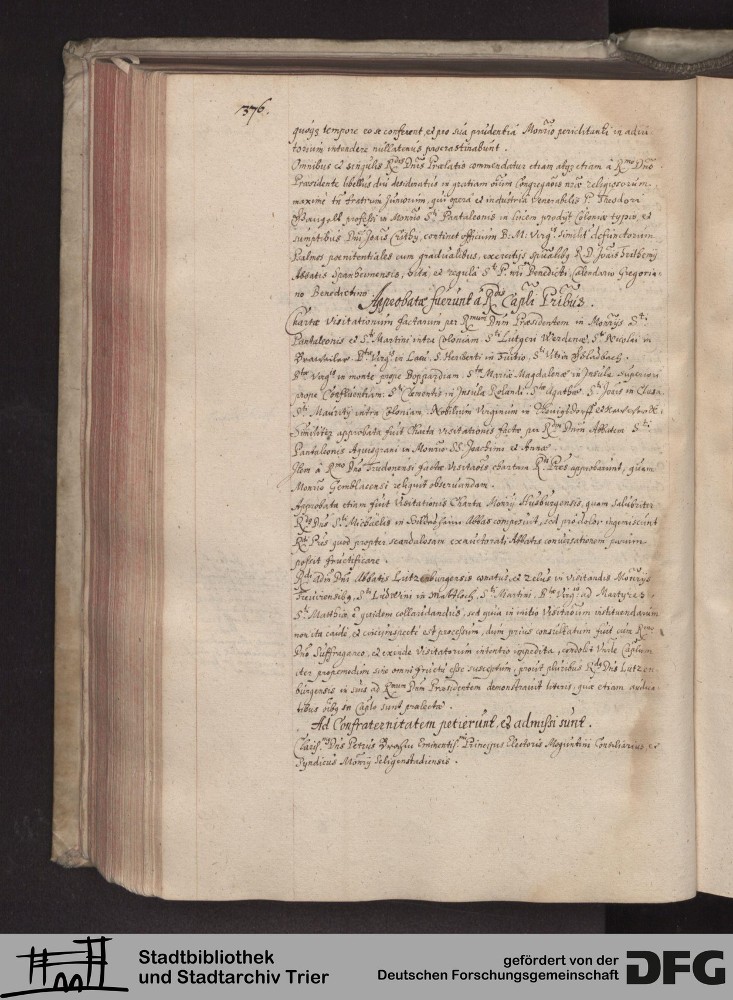 1376.
quoq3 tempore eo se conferent, et pro sua prudentia Monrio periclitanti in adiu
torium intendere nullatenus procrastinabunt.
Omnibus et singulis Rdis Dnis Prælatis commendatur etiam atq3 etiam à Rmo Dno
Præsidente libellus diu desideratus in gratiam oium Congregaõis nræ religiosorum,
maxime tn fratrum Juniorum, qui opera et industria venerabilis P. Theodori
professi in Monrio Sti Pantaleonis in lucem prodijt Coloniæ typis, et
sumptibus Dni Joãis continet officium B: M: Virgs. similit defunctorum
Psalmos poenitentiales cum gradualibus, exercitijs spũalibq R. D. Joãis Trithemij
Abbatis Spanheimensis, vita, et regula Sti P. nri Benedicti, Calendario Gregoria-
no Benedictino.
Approbatæ fuerunt à Rdis Capli Pribus.
Chartæ visitationum factarum per Rmum Dnm Præsidentem in Monrijs Sti
Pantaleonis et Sti Martini intra Coloniam. Sti Lutgeri Werdenæ, Sti Nicolai in
Brauweiler. Btæ Virgs in Lacu, S. Heriberti in Tuitio, Sti Viti in Gladbach.
Btæ Virgs in monte prope Boppardiam. Stæ Mariæ Magdalenæ in Insula superiori
prope Confluentiam. Sti Clementis in Insula Rolandi. Stæ Agathæ. Sti Joãis in
Sti Mauritij intra Coloniam. Nobilium Virginum in Königsdorff et
Similiter approbata fuit Charta visitationis factæ per Rdm Dnm Abbatem Sti
Pantaleonis Aquisgrani in Monrio SS. Joachimi et Annæ.
Item à Rmo Dno Trudonensi factæ visitaõis chartam Rdi Pres approbarunt, quam
Monrio Gemblacensi reliquit observandam.
Approbata etiam fuit Visitationis Charta Monrij Husburgensis, quam salubriter
Rdus Dns Sti Michaelis in Hildesheim Abbas composuit, sed pro dolor ingemiscunt
Rdi Pres quod propter scandalosam exauctorati Abbatis conversationem parum
possit fructificare.
Rdi adm Dni Abbatis Lutzenburgensis conatus, et zelus in visitandis Monrijs
Treuirensibq, Sti Ludwini in Mettloch, Sti Martini, Btæ Virgs: ad Martyres
Sti Matthiæ e quidem collaudandus, sed quia in initio Visitaõum instituendarum
non ita cautè, et circumspecte est processum, dum prius consultatum fuit cum Rmo
Dno Suffraganeo, et exinde Visitatorum intentio impedita, condolet Vnde Caplum
iter propemodum sine omni fructu esse susceptum, prout pluribus Rdus Dns Lutzen-
burgensis in suis ad Rmum Dnm Præsidentem demonstravit literis, quæ etiam audien
tibus oibq in Caplo sunt prælectæ.
Ad Confraternitatem petierunt, et admissi sunt.
Clariss. Dns Petrus Eminentiss. Principis Electoris Moguntini Consiliarius, et
Syndicus Monrij Seligenstadiensis.
Stadtbibliothek
und Stadtarchiv Trier
gefördert von der
Deutschen Forschungsgemeinschaft
DFG